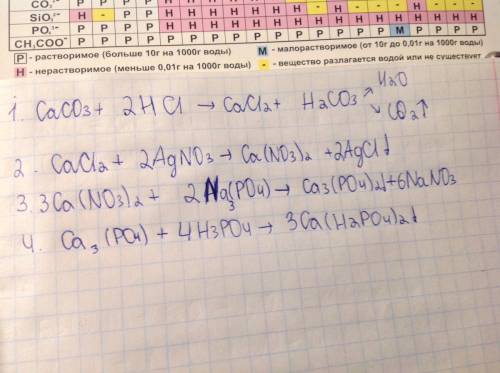 CO₃²⁻
SiO₃²⁻ Н - Р Р Н Н Н Н Н
PO₄³⁻ Р Р Р Р Н Н Н Н Н Н Н Н Н Н Н
CH₃COO⁻ Р Р Р Р Р Р Р Р Р Р Р М Р Р Р
Р - растворимое (больше 10г на 1000г воды) М - малорастворимое (от 10г до 0,01г на 1000г воды)
Н - нерастворимое (меньше 0,01г на 1000г воды) - - вещество разлагается водой или не существует
1. CaCO3 + 2HCl → CaCl2 + H2CO3 ↗ H2O
↘ CO2↑
2. CaCl2 + 2AgNO3 → Ca(NO3)2 + 2AgCl↓
3. 3Ca(NO3)2 + 2Na3(PO4) → Ca3(PO4)2↓ + 6NaNO3
4. Ca3(PO4) + 4H3PO4 → 3Ca(H2PO4)2↓